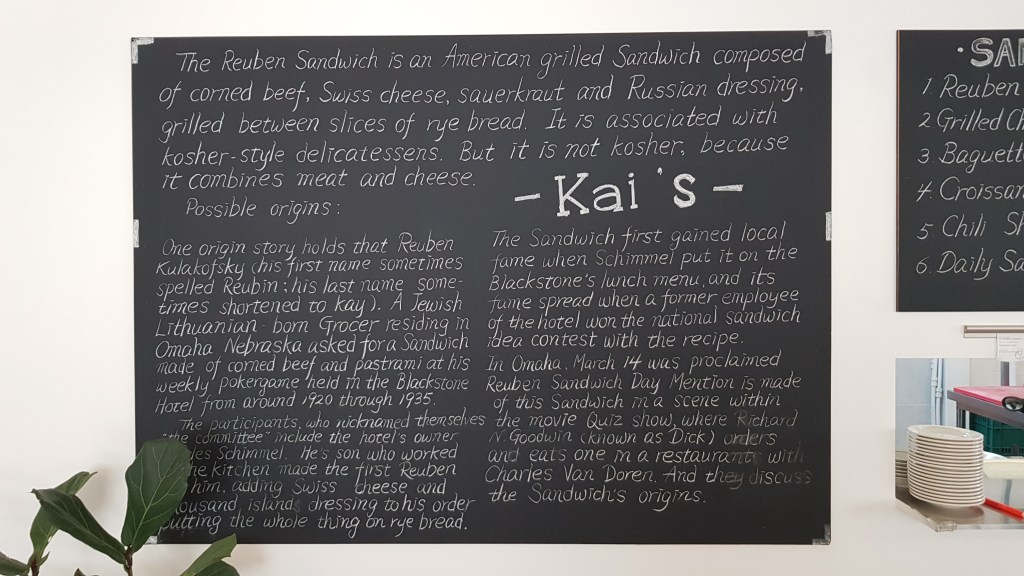 The Reuben Sandwich is an American grilled Sandwich composed
of corned beef, Swiss cheese, sauerkraut and Russian dressing,
grilled between slices of rye bread. It is associated with
kosher-style delicatessens. But it is not kosher, because
it combines meat and cheese.
- Kai's -
Possible origins:
One origin story holds that Reuben
Kulakofsky (his first name sometimes
spelled Reubin; his last name some-
times shortened to Kay). A Jewish
Lithuanian-born Grocer residing in
Omaha, Nebraska asked for a Sandwich
made of corned beef and pastrami at his
weekly pokergame held in the Blackstone
Hotel from around 1920 through 1935.
The participants, who nicknamed themselves
"the committee" include the hotel's owner
Schimmel. He's son who worked
kitchen made the first Reuben
him, adding Swiss cheese and
island dressing to his order
putting the whole thing on rye bread.
The Sandwich first gained local
fame when Schimmel put it on the
Blackstone's lunch menu, and its
fame spread when a former employee
of the hotel won the national sandwich
idea contest with the recipe.
In Omaha, March 14 was proclaimed
Reuben Sandwich Day Mention is made
of this Sandwich in a scene within
the movie Quiz show, where Richard
N. Goodwin (known as Dick) orders
and eats one in a restaurant with
Charles Van Doren. And they discuss
the Sandwich's origins.
· SA
1 Reuben
2 Grilled Ch
3 Baguett
4. Croissan
5 Chili Sh
6. Daily Sa